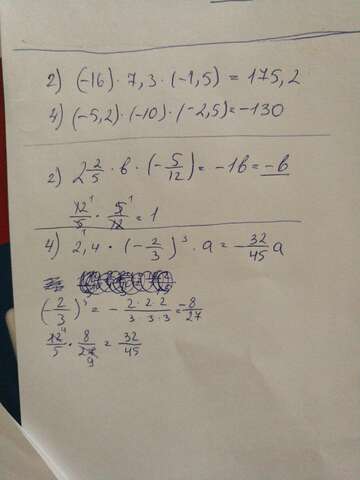 2) (-16) · 7,3 · (-1,5) = 175,2
4) (-5,2) · (-10) · (-2,5) = -130
2) 2 2/5 · b · (-5/12) = -1b = -b
12/5 · 5/12 = 1
4) 2,4 · (-2/3)³ · a = -32/45 a
(-2/3)³ = - 2·2·2/3·3·3 = -8/27
12/5 · 8/27 = 32/45